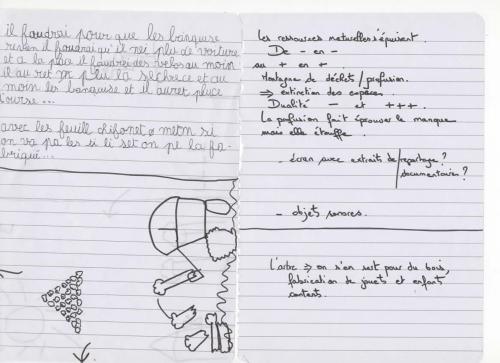 il foudrai pour que les banquise
resten il foudrai qu'il nei plu de voiture
et a la place il foudrai des velos au moin
il au ret pr plu la séchrece et au
moin les banquise et il auret pluce
d'ourse...
avec les feuill chifonet
on va pa les
briqué...
Les ressources naturelles s'épuisent.
De - en -
au + en +
Montagne de déchets / profusion.
⇒ extinction des espèces.
Dualité - et +++.
La profusion fait éprouver le manque
mais elle étouffe.
- écran avec extraits de reportage?
documentaire?
- objets sonores.
L'arbre ⇒ on s'en sert pour du bois,
fabrication de jouets et enfants
contents.